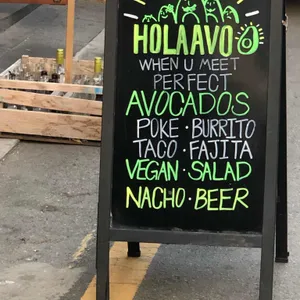 HOLAAVO
WHEN U MEET
PERFECT
AVOCADOS
POKE · BURRITO
TACO · FAJITA
VEGAN · SALAD
NACHO · BEER